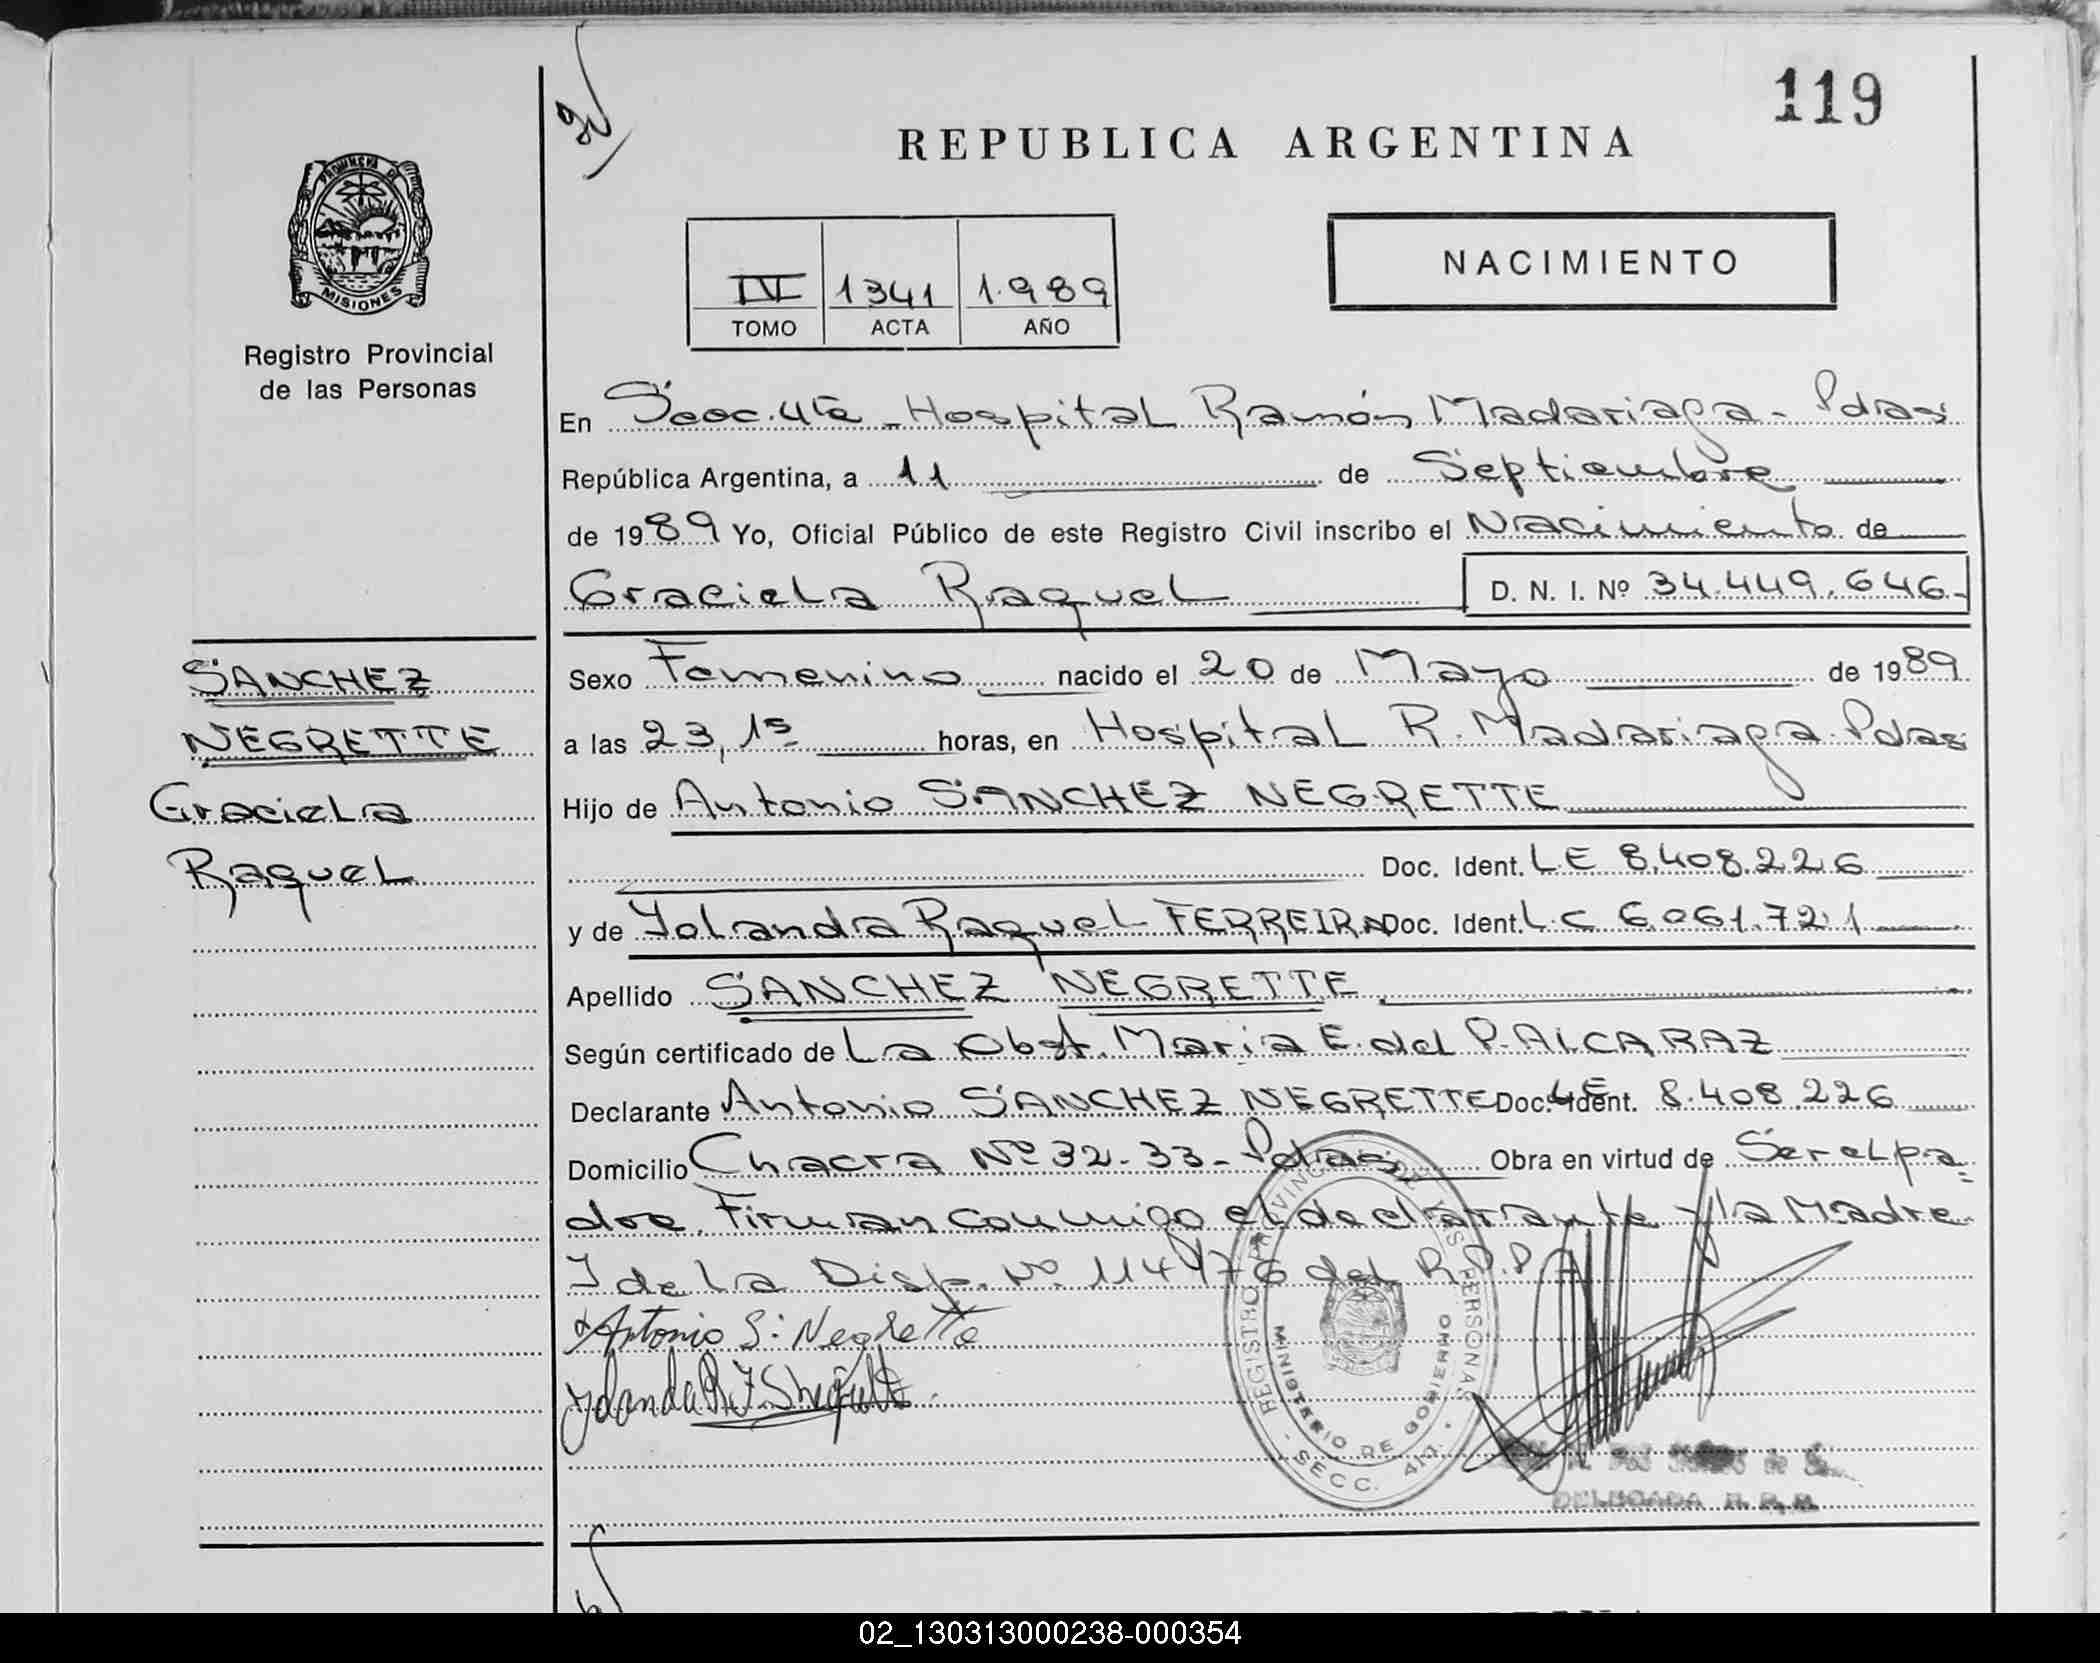 119
REPUBLICA ARGENTINA
PROVINCIA DE
MISIONES
Registro Provincial
de las Personas
IV 1341 1.989
TOMO ACTA AÑO
NACIMIENTO
En Secc. 4ta - Hospital Ramón Madariaga - Pdas
República Argentina, a 11 de Septiembre
de 1989 Yo, Oficial Público de este Registro Civil inscribo el Nacimiento de
Graciela Raquel D. N. I. Nº 34.449.646-
SANCHEZ
NEGRETTE
Graciela
Raquel
Sexo Femenino nacido el 20 de Mayo de 1989
a las 23,15 horas, en Hospital R. Madariaga. Pdas
Hijo de Antonio SANCHEZ NEGRETTE
Doc. Ident. LE 8.408.226
y de Yolanda Raquel FERREIRA Doc. Ident. L.C 6.061.721
Apellido SANCHEZ NEGRETTE
Según certificado de La Obst. Maria E. del P. ALCARAZ
Declarante Antonio SANCHEZ NEGRETTE Doc. Ident. LE 8.408.226
Domicilio Chacra Nº 32-33- Pdas Obra en virtud de Ser el pa=
dre. Firman conmigo el declarante y la Madre
Y de la Disp. Nº 114/76 del R.P.P.
Antonio S: Negrette
Yolanda R. F.
REGISTRO PROVINCIAL DE LAS PERSONAS
MINISTERIO DE GOBIERNO
- SECC. 4ta. -
DELEGADA R.P.P.
02_130313000238-000354